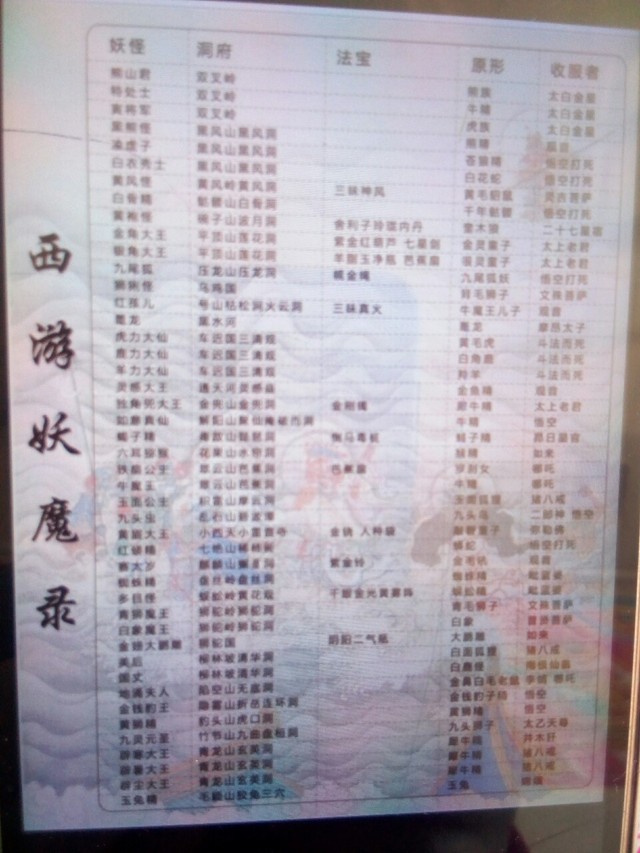 西游妖魔录
妖怪 洞府 法宝 原形 收服者
熊山君 双叉岭 熊族 太白金星
特处士 双叉岭 牛精 太白金星
寅将军 双叉岭 虎族 太白金星
黑熊怪 黑风山黑风洞 熊精 观音
凌虚子 黑风山黑风洞 苍狼精 悟空打死
白衣秀士 黑风山黑风洞 白花蛇 悟空打死
黄风怪 黄风岭黄风洞 三昧神风 黄毛貂鼠 灵吉菩萨
白骨精 骷髅山白骨洞 千年骷髅 悟空打死
黄袍怪 碗子山波月洞 舍利子玲珑内丹 奎木狼 二十七星宿
金角大王 平顶山莲花洞 紫金红葫芦 七星剑 金灵童子 太上老君
银角大王 平顶山莲花洞 羊脂玉净瓶 芭蕉扇 银灵童子 太上老君
九尾狐 压龙山压龙洞 幌金绳 九尾狐妖 悟空打死
狮猁怪 乌鸡国 青毛狮子 文殊菩萨
红孩儿 号山枯松洞火云洞 三昧真火 牛魔王儿子 观音
鼍龙 黑水河 鼍龙 摩昂太子
虎力大仙 车迟国三清观 黄毛虎 斗法而死
鹿力大仙 车迟国三清观 白角鹿 斗法而死
羊力大仙 车迟国三清观 羚羊 斗法而死
灵感大王 通天河灵感县 金鱼精 观音
独角兕大王 金兜山金兜洞 金刚镯 犀牛精 太上老君
如意真仙 解阳山聚仙庵破儿洞 牛精 悟空
蝎子精 毒敌山琵琶洞 倒马毒桩 蝎子精 昴日星官
六耳猕猴 花果山水帘洞 猿精 如来
铁扇公主 翠云山芭蕉洞 芭蕉扇 罗刹女 哪吒
牛魔王 翠云山芭蕉洞 牛精 哪吒
玉面公主 积雷山摩云洞 玉面狐狸 猪八戒
九头虫 乱石山碧波潭 九头鸟 二郎神 悟空
黄眉大王 小西天小雷音寺 金铙 人种袋 黄眉童子 弥勒佛
红鳞精 七绝山稀柿衕 蟒蛇 悟空打死
赛太岁 麒麟山獬豸洞 紫金铃 金毛犼 观音
蜘蛛精 盘丝岭盘丝洞 蜘蛛精 毗蓝婆
多目怪 蜈蚣岭黄花观 千眼金光黄雾阵 蜈蚣精 毗蓝婆
青狮魔王 狮驼岭狮驼洞 青毛狮子 文殊菩萨
白象魔王 狮驼岭狮驼洞 白象 普贤菩萨
金翅大鹏雕 狮驼国 阴阳二气瓶 大鹏雕 如来
美后 柳林坡清华洞 白面狐狸 猪八戒
国丈 柳林坡清华洞 白鹿精 南极仙翁
地涌夫人 陷空山无底洞 金鼻白毛老鼠 李靖 哪吒
金钱豹王 隐雾山折岳连环洞 金钱豹子精 悟空
黄狮精 豹头山虎口洞 黄狮精 悟空
九灵元圣 竹节山九曲盘桓洞 九头狮子 太乙天尊
辟寒大王 青龙山玄英洞 犀牛精 井木犴
辟暑大王 青龙山玄英洞 犀牛精 猪八戒
辟尘大王 青龙山玄英洞 犀牛精 猪八戒
玉兔精 毛颖山狡兔三穴 玉兔 嫦娥